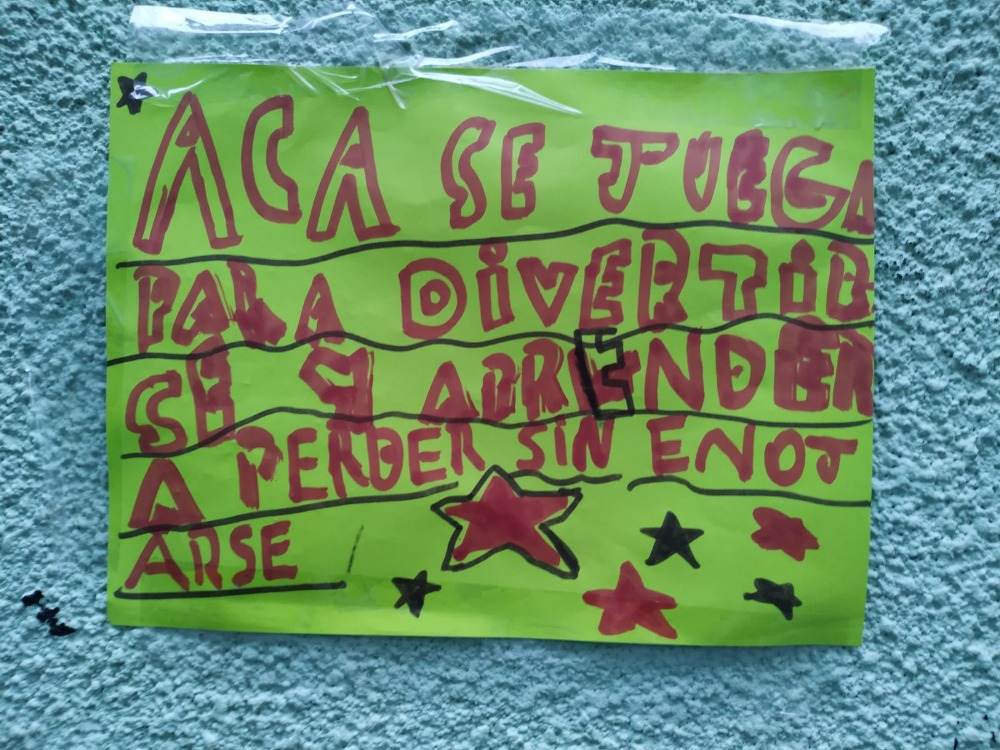 ACA SE JUEGA
PARA DIVERTIR
SE Y APRENDER
A PERDER SIN ENOJ
ARSE